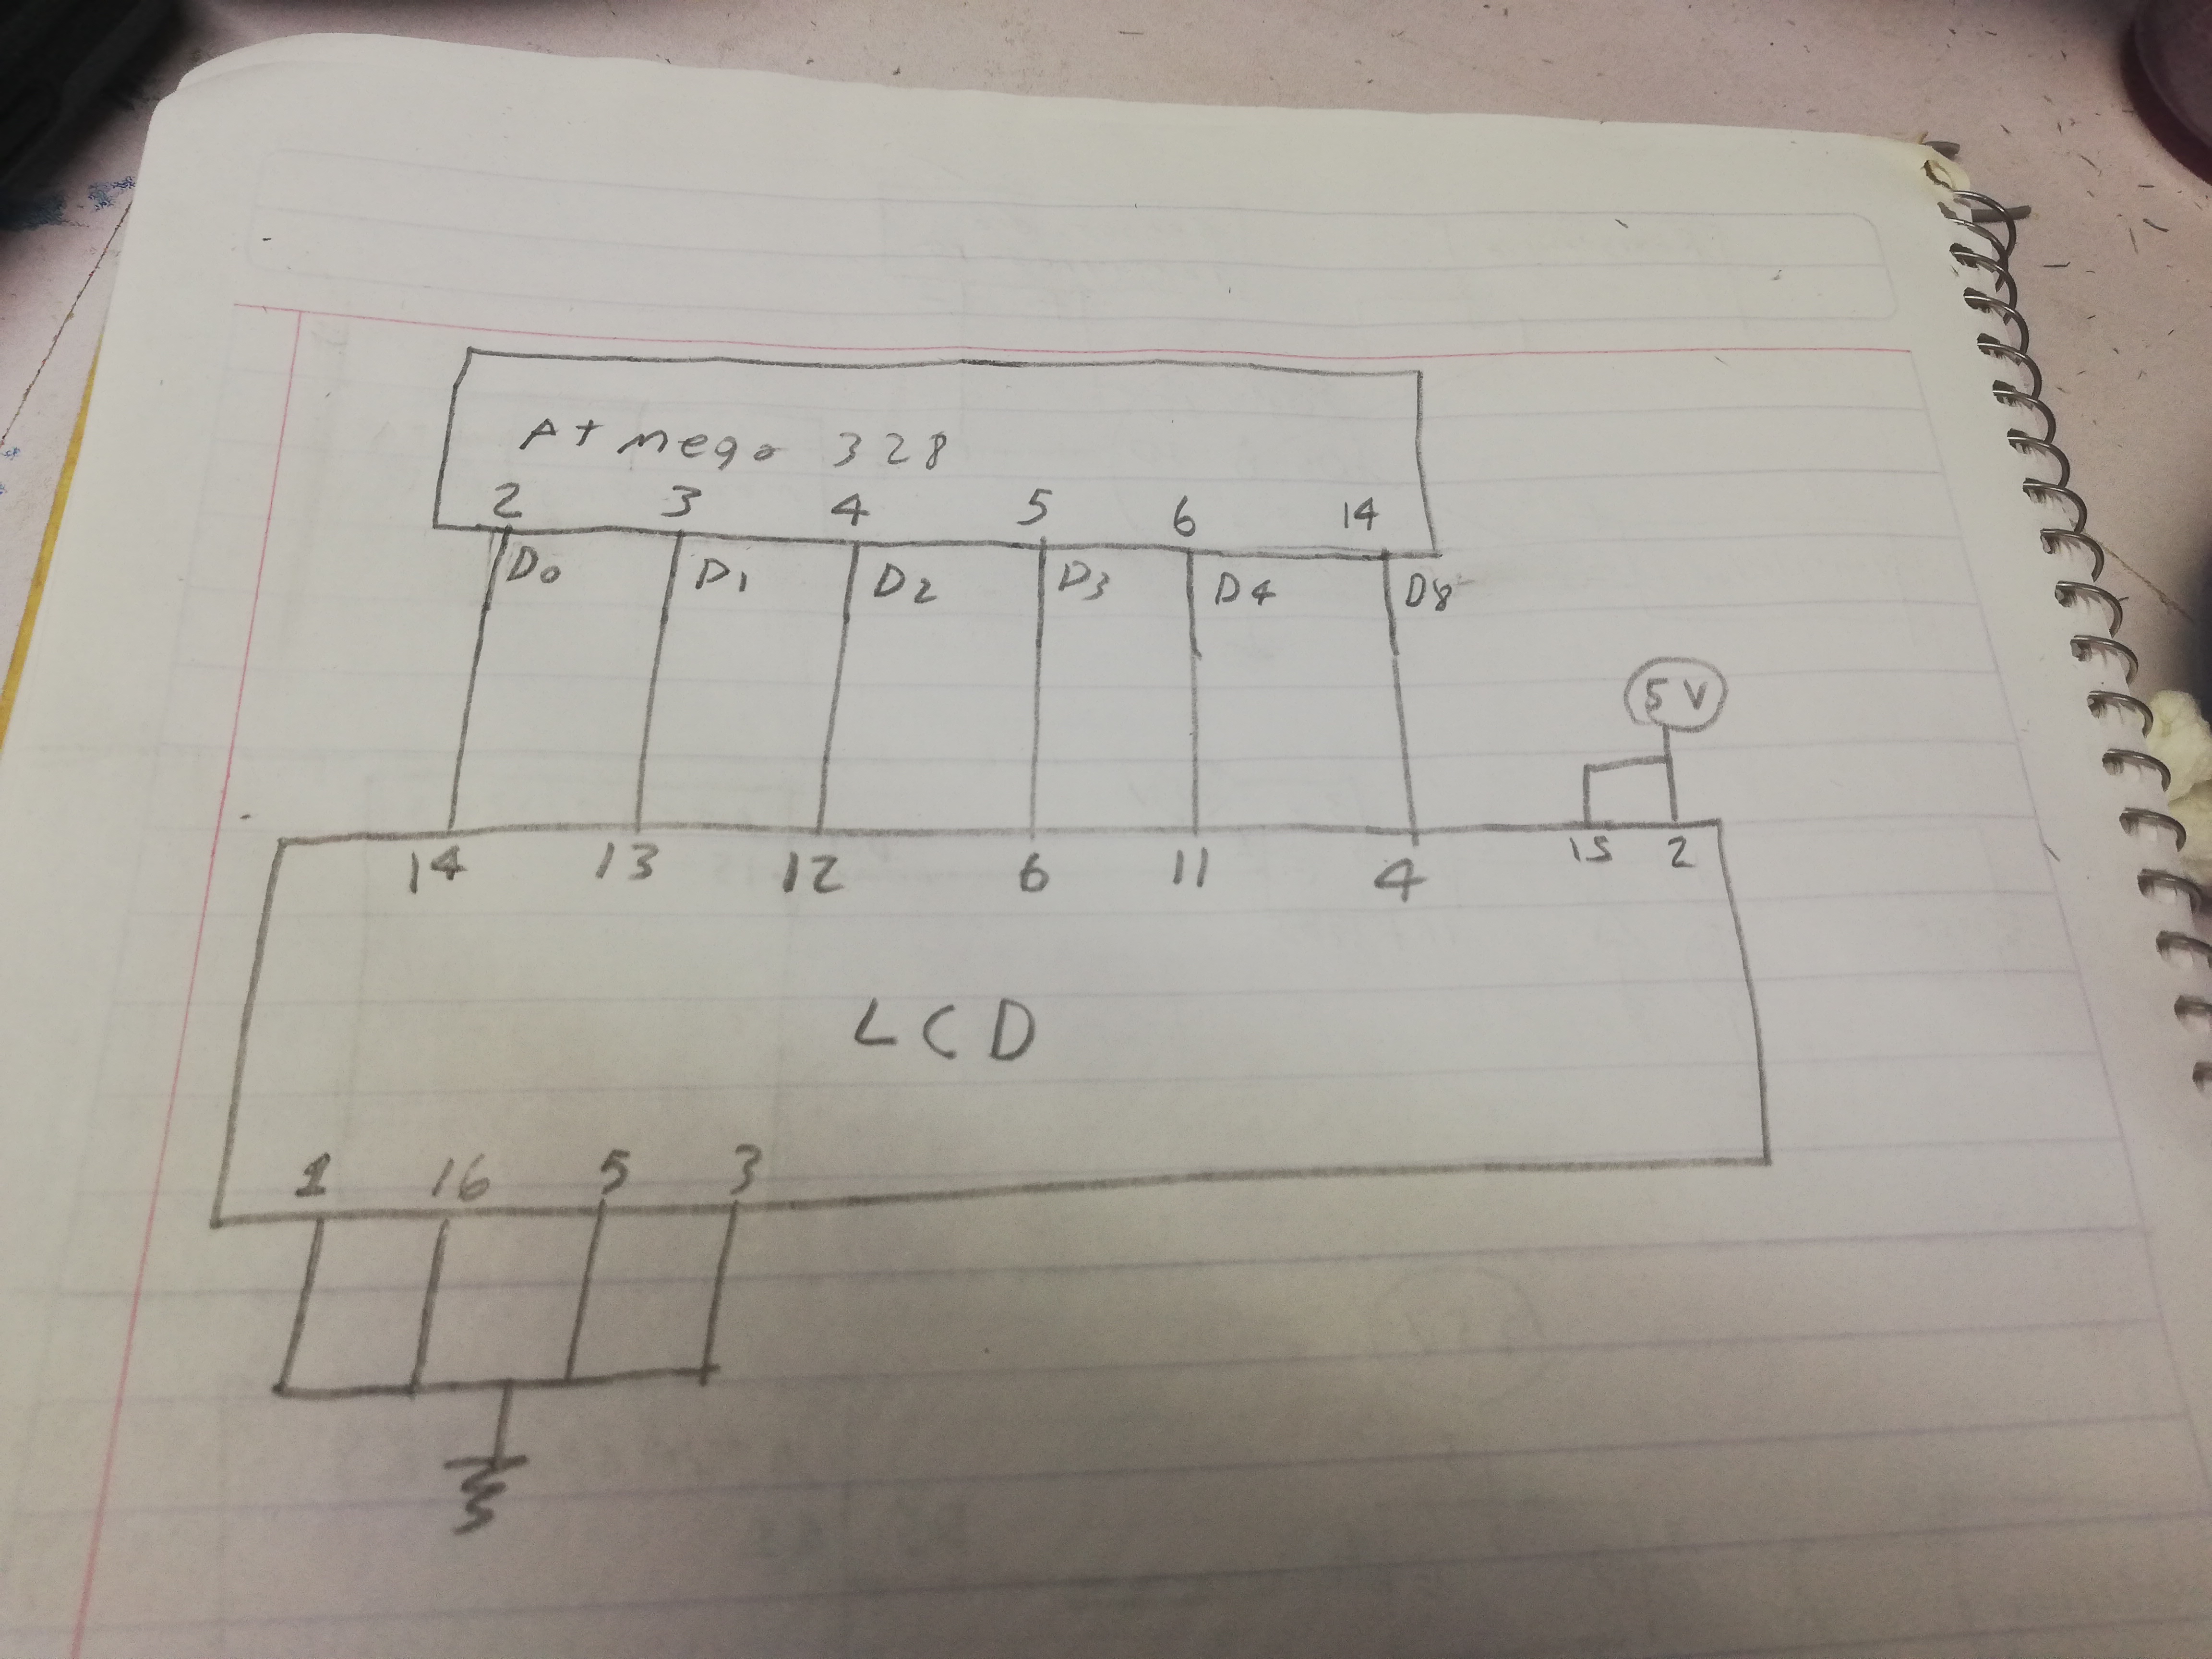 ATmega 328
2 3 4 5 6 14
D0 D1 D2 D3 D4 D8
5V
14 13 12 6 11 4 15 2
LCD
1 16 5 3